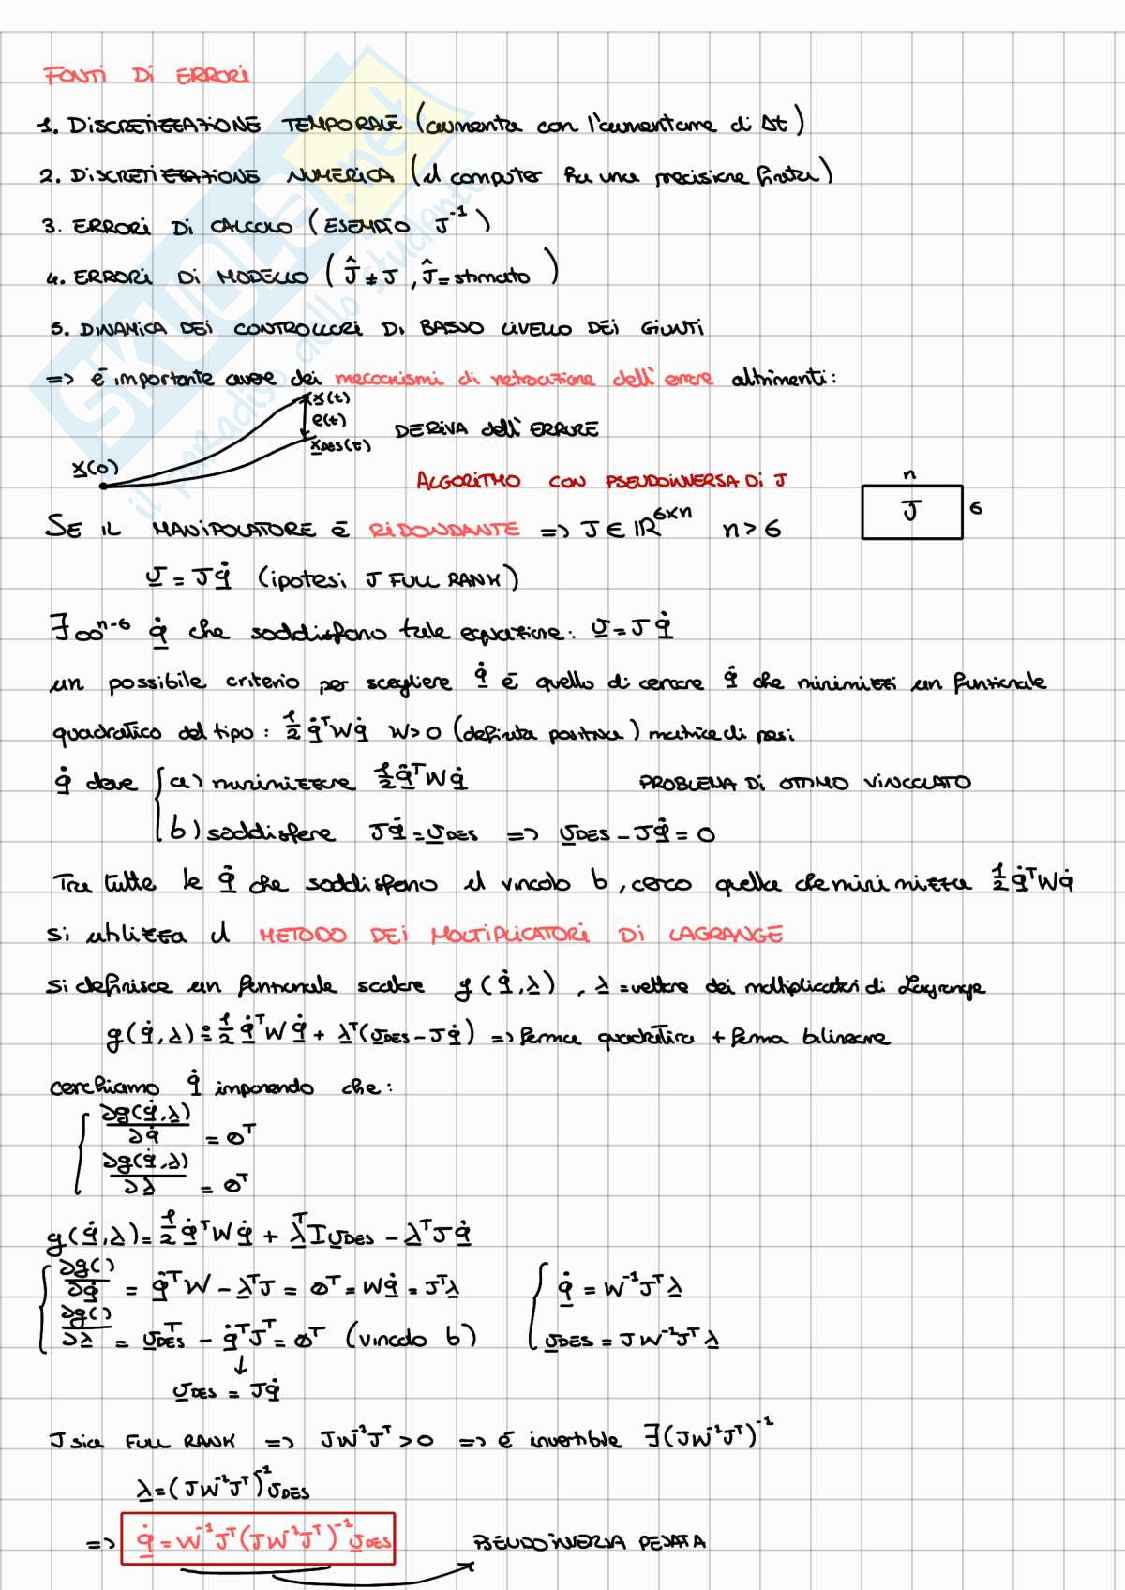 FONTI DI ERRORI
1. DISCRETIZZAZIONE TEMPORALE (aumenta con l'aumentare di Δt)
2. DISCRETIZZAZIONE NUMERICA (il computer ha una precisione finita)
3. ERRORI DI CALCOLO (ESEMPIO J⁻¹)
4. ERRORI DI MODELLO (Ĵ ≠ J, Ĵ = stimato)
5. DINAMICA DEI CONTROLLORI DI BASSO LIVELLO DEI GIUNTI
=> è importante avere dei meccanismi di retroazione dell'errore altrimenti:
x(t)
e(t)
x_DES(t)
x(0)
DERIVA dell'ERRORE
ALGORITMO CON PSEUDOINVERSA DI J
n
J
6
SE IL MANIPOLATORE È RIDONDANTE => J ∈ ℝ^(6×n) n>6
v = Jq̇ (ipotesi J FULL RANK)
∃ ∞^(n-6) q̇ che soddisfano tale equazione: v = Jq̇
un possibile criterio per scegliere q̇ è quello di cercare q̇ che minimizzi un funzionale
quadratico del tipo: ½ q̇ᵀWq̇ W>0 (definita positiva) matrice di pesi
q̇ deve { a) minimizzare ½ q̇ᵀWq̇ PROBLEMA DI OTTIMO VINCOLATO
b) soddisfare Jq̇ = v_DES => v_DES - Jq̇ = 0
Tra tutte le q̇ che soddisfano il vincolo b, cerco quella che minimizza ½ q̇ᵀWq̇
si utilizza il METODO DEI MOLTIPLICATORI DI LAGRANGE
si definisce un funzionale scalare g(q̇,λ), λ = vettore dei moltiplicatori di Lagrange
g(q̇,λ) = ½ q̇ᵀWq̇ + λᵀ(v_DES - Jq̇) => forma quadratica + forma bilineare
cerchiamo q̇ imponendo che:
{ ∂g(q̇,λ)/∂q̇ = 0ᵀ
∂g(q̇,λ)/∂λ = 0ᵀ
g(q̇,λ) = ½ q̇ᵀWq̇ + λᵀI v_DES - λᵀJq̇
{ ∂g()/∂q̇ = q̇ᵀW - λᵀJ = 0ᵀ = Wq̇ = Jᵀλ { q̇ = W⁻¹Jᵀλ
∂g()/∂λ = v_DESᵀ - q̇ᵀJᵀ = 0ᵀ (vincolo b) v_DES = JW⁻¹Jᵀλ
↓
v_DES = Jq̇
J sia FULL RANK => JW⁻¹Jᵀ > 0 => è invertibile ∃(JW⁻¹Jᵀ)⁻¹
λ = (JW⁻¹Jᵀ)⁻¹ v_DES
=> q̇ = W⁻¹Jᵀ(JW⁻¹Jᵀ)⁻¹ v_DES PSEUDOINVERSA PESATA
SKUOLA.net
il paradiso dello studente